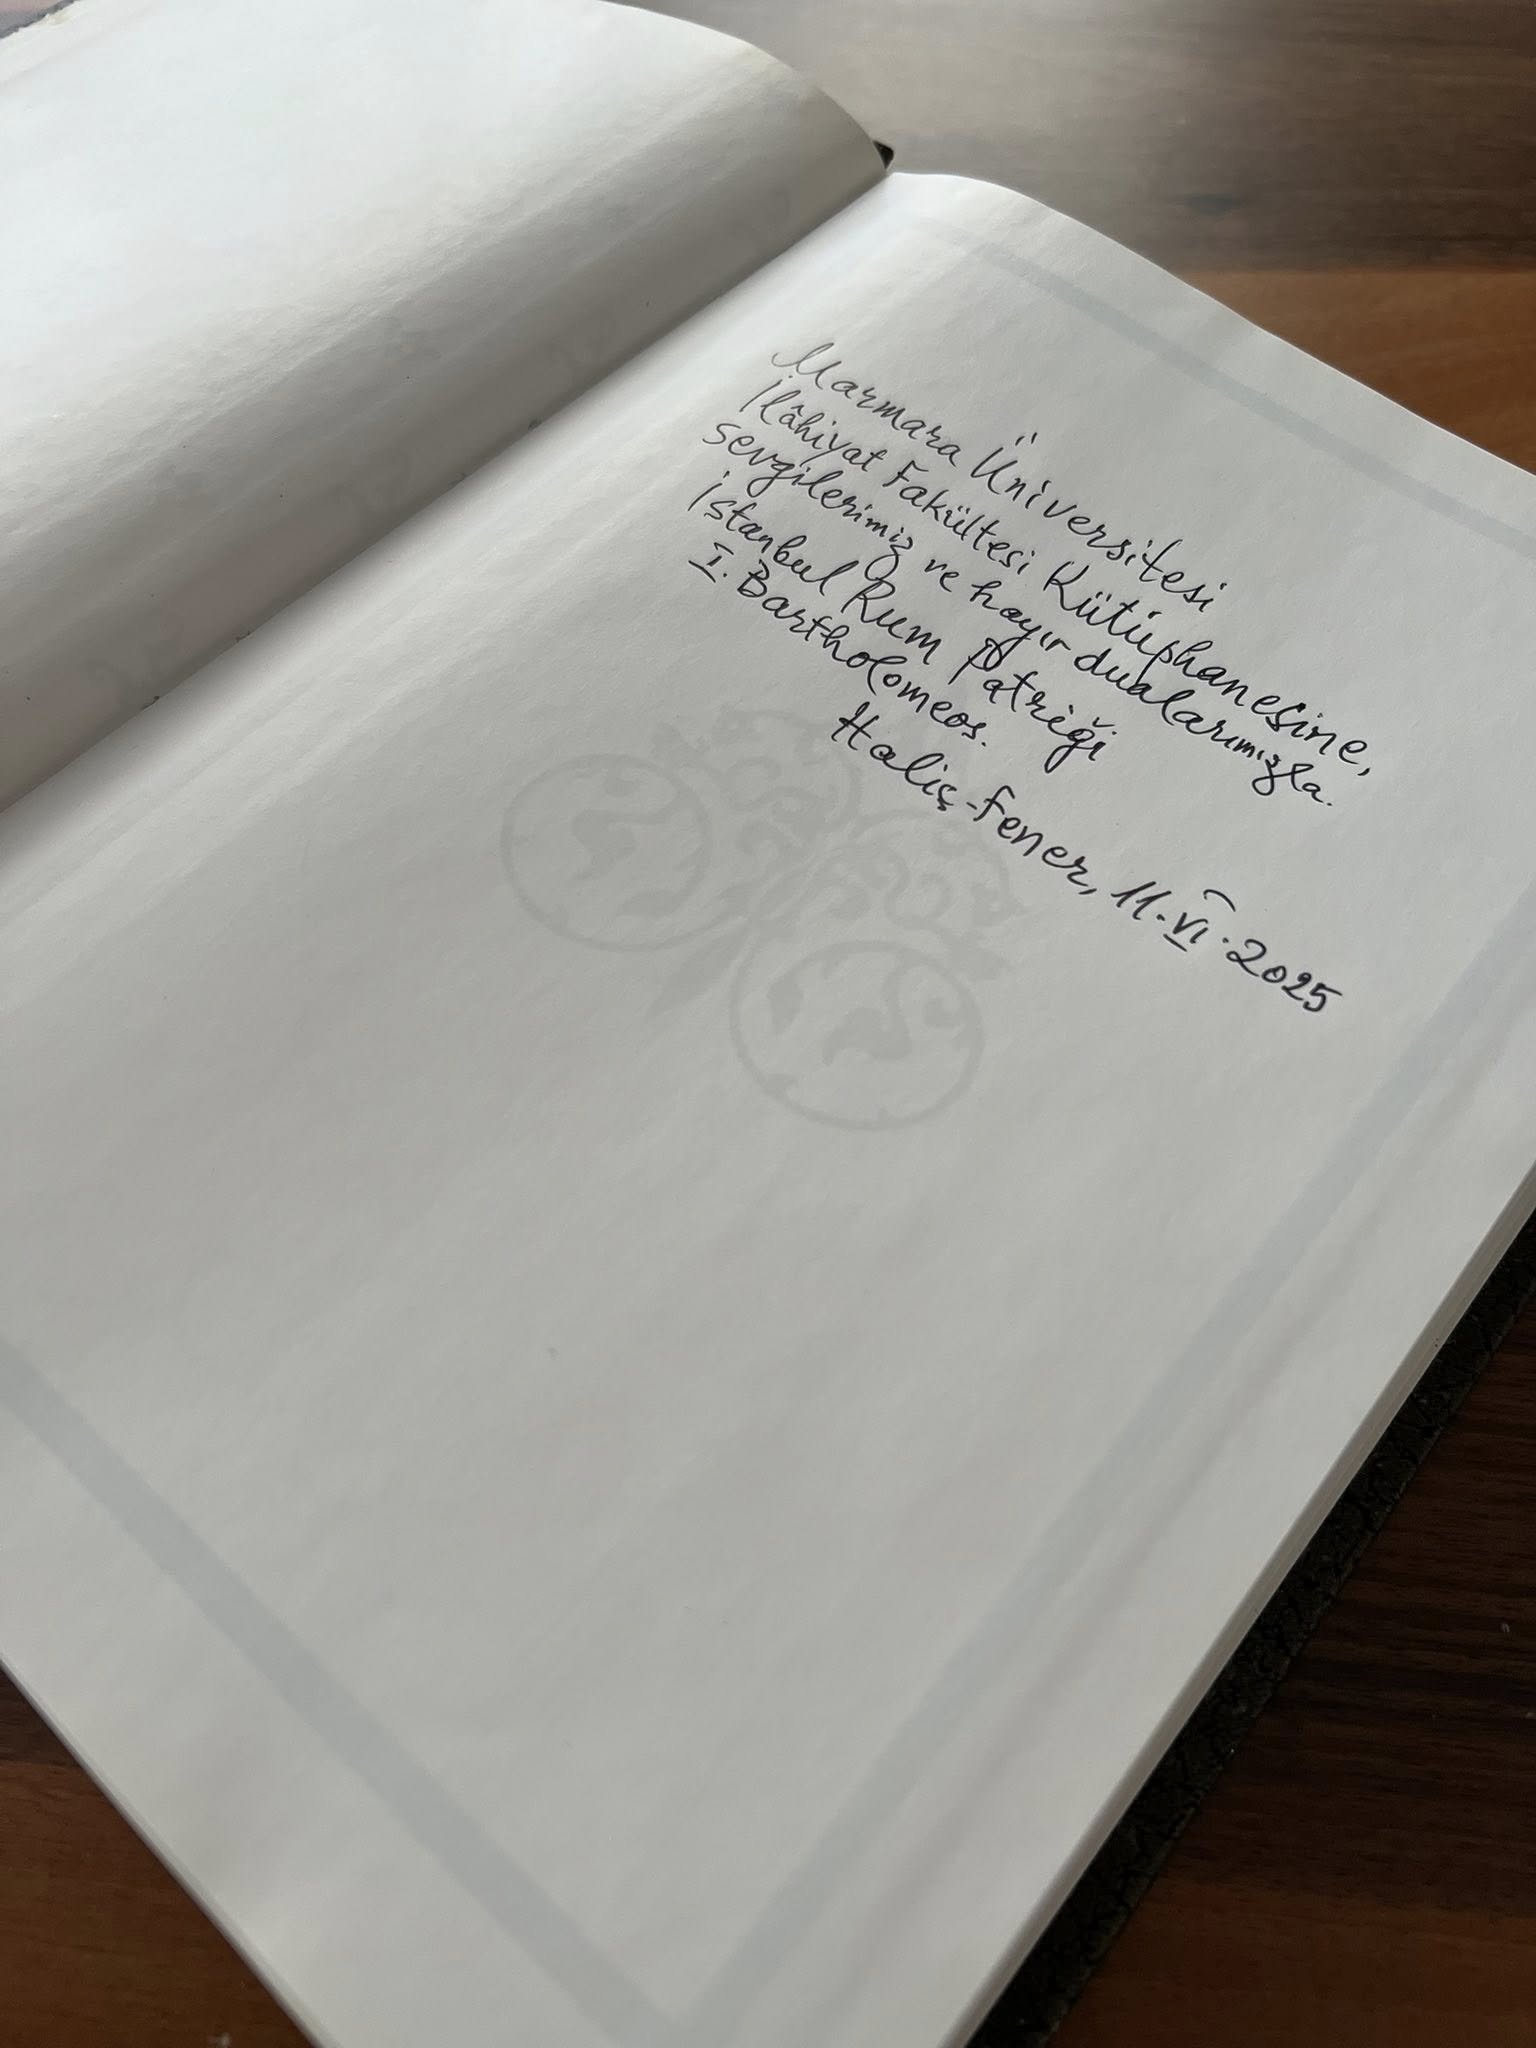 Marmara Üniversitesi
İlâhiyat Fakültesi Kütüphanesine,
sevgilerimiz ve hayır dualarımızla.
İstanbul Rum Patriği
I. Bartholomeos.
Haliç-Fener, 11.VI.2025